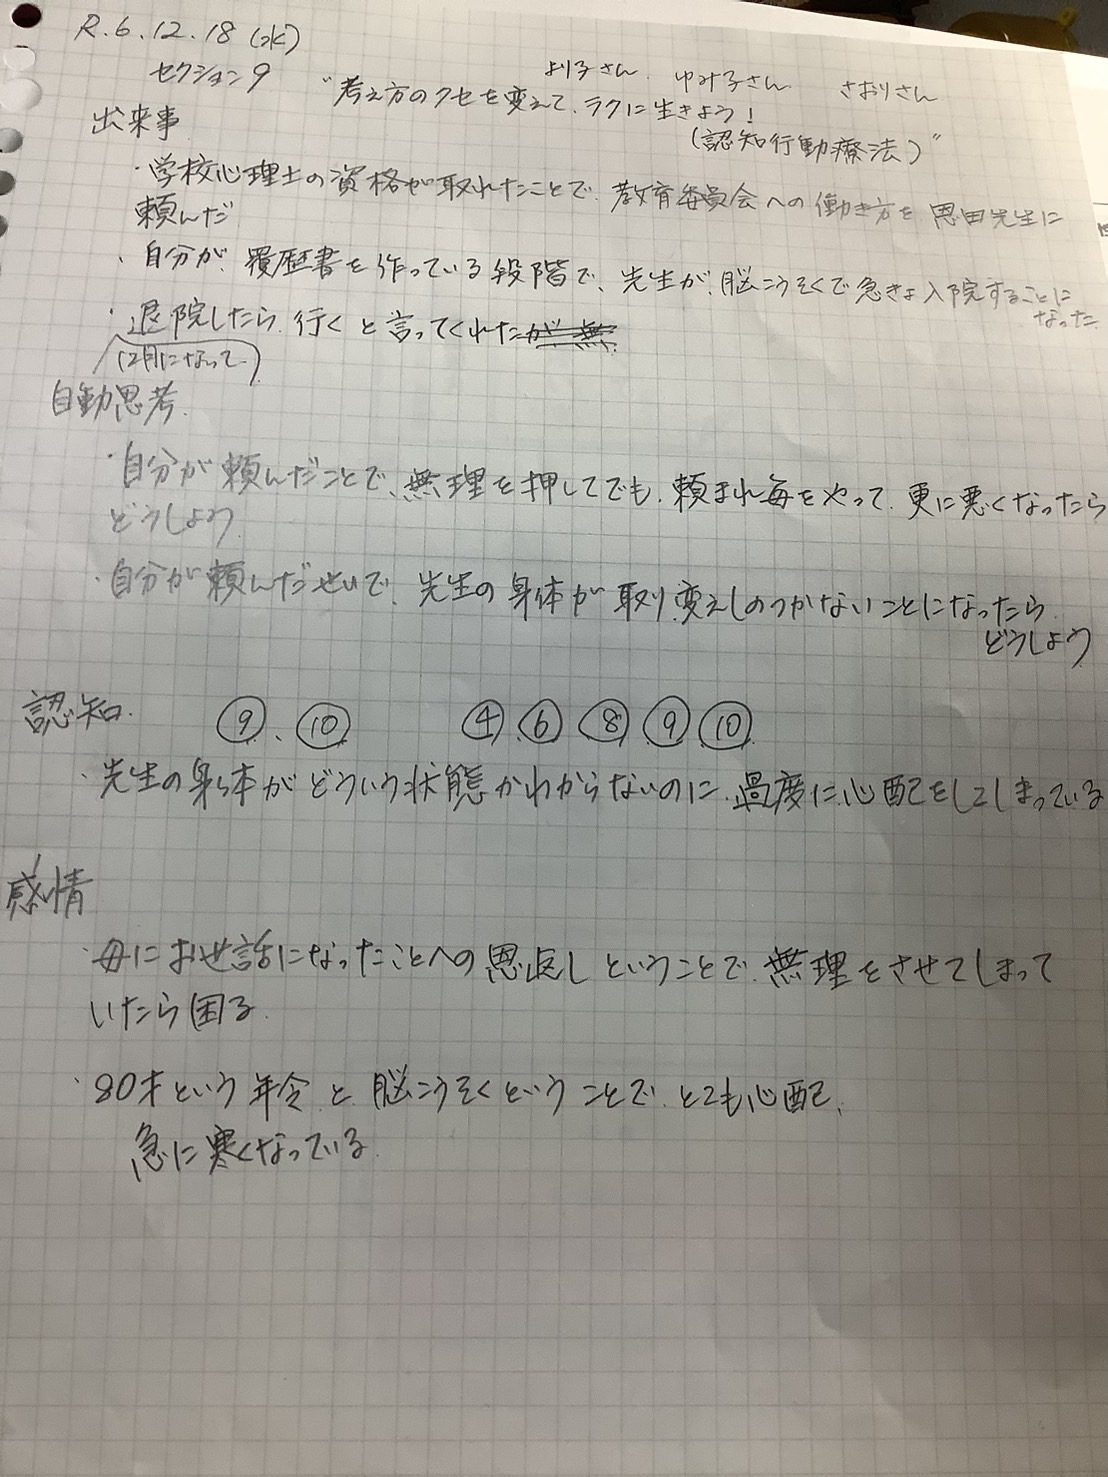 R.6.12.18(水)
よう子さん ゆみ子さん さおりさん
セクション9 "考え方のクセを変えて、ラクに生きよう!
(認知行動療法)"
出来事
・学校心理士の資格が取れたことで、教育委員会への働き方を恩田先生に
頼んだ
・自分が、履歴書を作っている段階で、先生が、脳こうそくで急きょ入院することに
なった
・退院したら、行くと言ってくれた
(12月になって)
自動思考
・自分が頼んだことで、無理を押してでも、頼まれ毎をやって、更に悪くなったら
どうしよう
・自分が頼んだせいで、先生の身体が取り変えしのつかないことになったら
どうしよう
認知 ⑨、⑩ ④⑥⑧⑨⑩
・先生の身体がどういう状態かわからないのに、過度に心配をしてしまっている
感情
・母にお世話になったことへの恩返しということで、無理をさせてしまって
いたら困る
・80才という年令と脳こうそくということで、とても心配、
急に寒くなっている